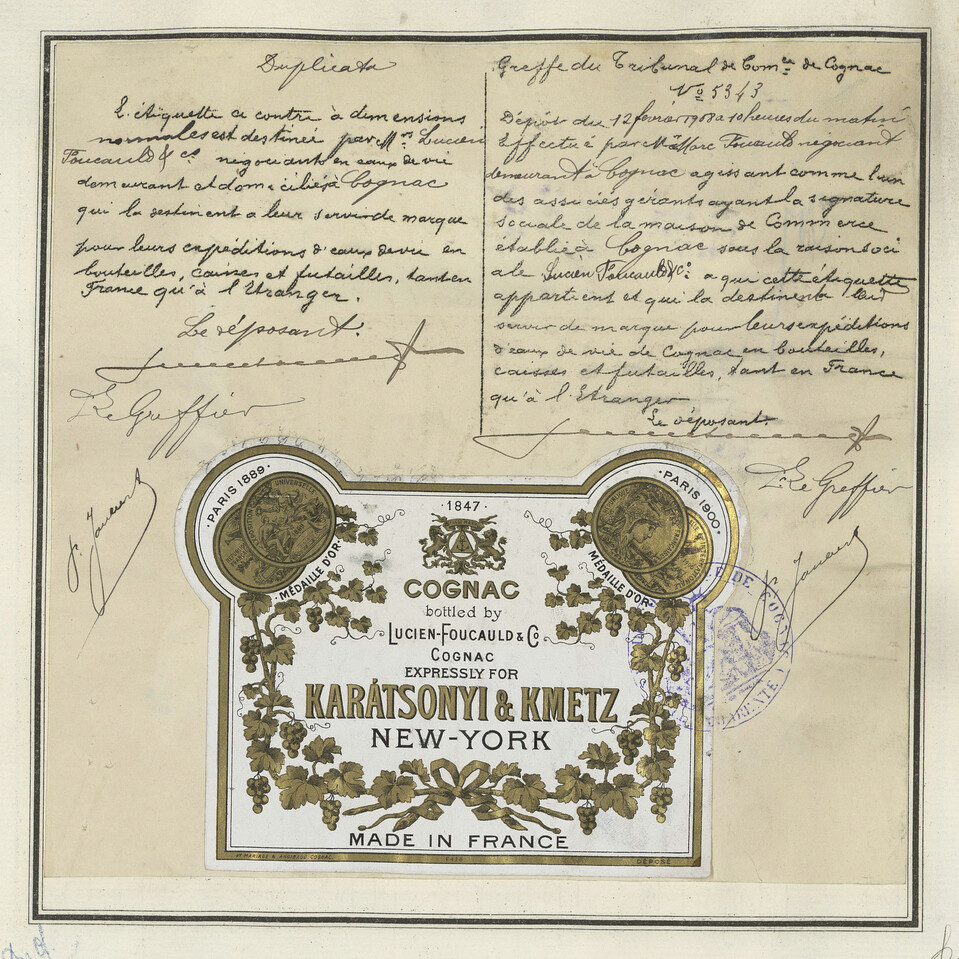 Duplicata
L'étiquette ci contre à dimensions
normales est destinée par MM. Lucien
Foucauld & Co négociants en eaux de vie
demeurant et domiciliés à Cognac
qui la destinent a leur servir de marque
pour leurs expéditions d'eaux de vie en
bouteilles, caisses et futailles, tant en
France qu'à l'Etranger.
Le déposant.
Le Greffier
Greffe du Tribunal de Comce de Cognac
No 5343
Dépôt du 12 février 1908 a 10 heures du matin
Effectué par M. Marc Foucauld négociant
demeurant à Cognac agissant comme l'un
des associés gérants ayant la signature
sociale de la maison de Commerce
établie à Cognac sous la raison soci
ale Lucien Foucauld & Co a qui cette étiquette
appartient et qui la destinent a leur
servir de marque pour leurs expéditions
d'eaux de vie de Cognac en bouteilles,
caisses et futailles, tant en France
qu'à l'Etranger
Le déposant.
Le Greffier
PARIS 1889
MÉDAILLE D'OR
PARIS 1900
MÉDAILLE D'OR
1847
COGNAC
bottled by
LUCIEN-FOUCAULD & Co
COGNAC
EXPRESSLY FOR
KARÁTSONYI & KMETZ
NEW-YORK
MADE IN FRANCE
DÉPOSÉ
DE COGNAC
CHARENTE